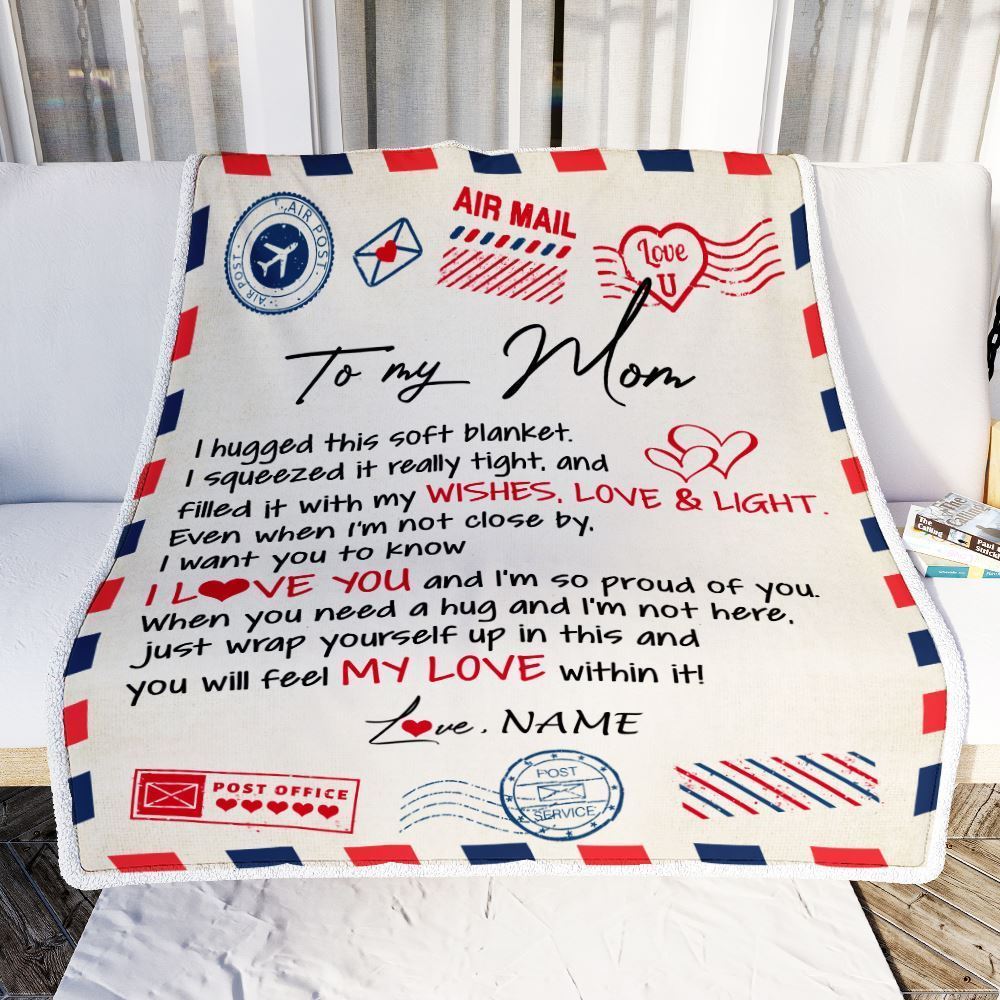 AIR POST
AIR POST
AIR MAIL
Love
U
To my Mom
I hugged this soft blanket.
I squeezed it really tight, and
filled it with my WISHES, LOVE & LIGHT.
Even when I'm not close by,
I want you to know
I L❤VE YOU and I'm so proud of you.
When you need a hug and I'm not here,
just wrap yourself up in this and
you will feel MY LOVE within it!
L❤ve, NAME
POST OFFICE
POST
SERVICE
The
Calling
Paul